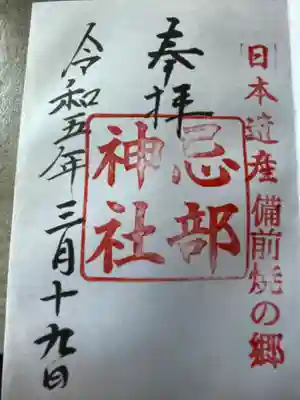 日本遺産備前焼の郷
奉拝
忌部
神社
令和五年三月十九日